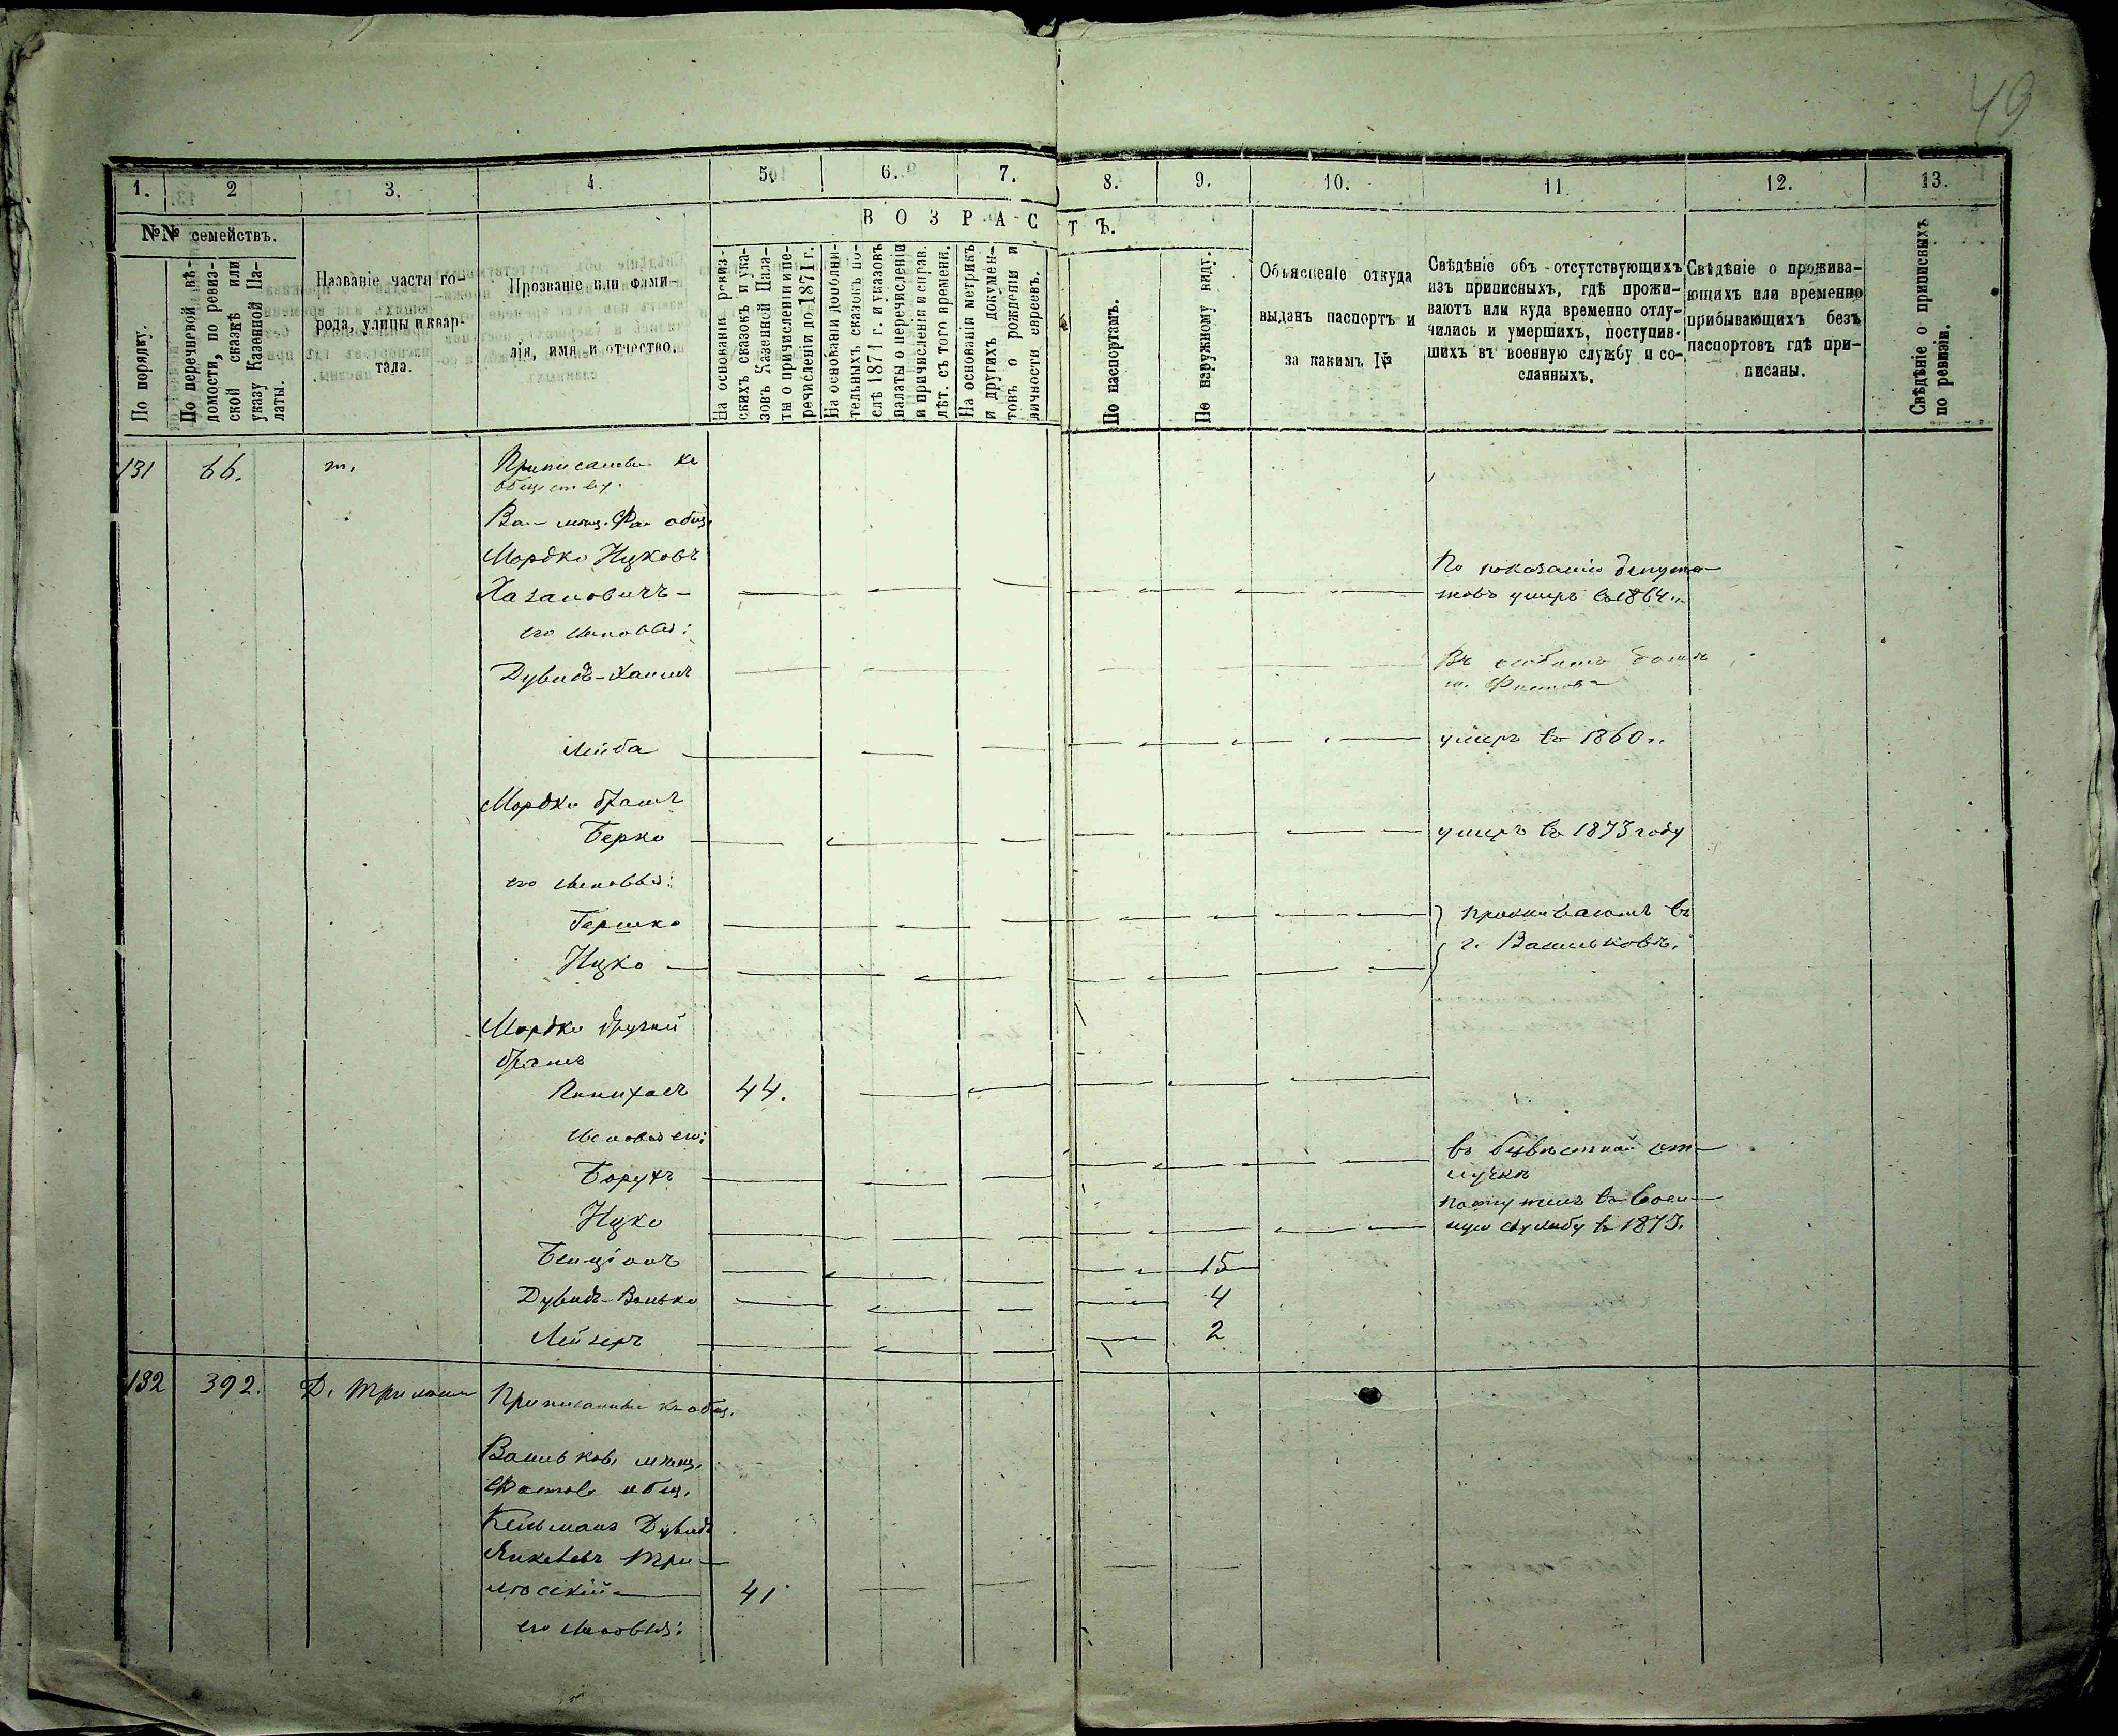 49
1. 2 3. 4. 5. 6. 7. 8. 9. 10. 11. 12. 13.
№№ семействъ.
В О З Р А С Т Ъ.
По порядку.
По перечневой вѣ-
домости, по ревиз-
ской сказкѣ или
указу Казенной Па-
латы.
Названіе части го-
рода, улицы и квар-
тала.
Прозваніе или фами-
лія, имя и отчество.
На основаніи ревиз-
скихъ сказокъ и ука-
зовъ Казенной Пала-
ты о причисленіи и пе-
речисленіи до 1871 г.
На основаніи дополни-
тельныхъ сказокъ по-
слѣ 1871 г. и указовъ
палаты о перечисленіи
и причисленіи и справ.
лѣт. съ того времени.
На основаніи метрикъ
и другихъ докумен-
товъ о рожденіи и
личности евреевъ.
По паспортамъ.
По наружному виду.
Объясненіе откуда
выданъ паспортъ и
за какимъ №
Свѣдѣніе объ отсутствующихъ
изъ приписныхъ, гдѣ прожи-
ваютъ или куда временно отлу-
чились и умершихъ, поступив-
шихъ въ военную службу и со-
сланныхъ.
Свѣдѣніе о прожива-
ющихъ или временно
прибывающихъ безъ
паспортовъ гдѣ при-
писаны.
Свѣдѣніе о приписныхъ
по ревизіи.
131 66. т. Приписанные къ
обществу.
Вас мѣщ. Фас общ.
Мордко Ицковъ
По показанію депута-
Хазановичъ —
товъ умеръ въ 1864 г.
его сыновья:
Дувидъ-Хаимъ
Въ особомъ домѣ
м. Фастова
Лейба
умеръ въ 1860 г.
Мордки братъ
Берко
умеръ въ 1873 году
его сыновья:
Гершко
проживаютъ въ
Ицко
г. Васильковѣ.
Мордки другой
братъ
Пинхасъ 44.
сыновья его:
въ безвѣстной от-
Борухъ
лучкѣ
поступилъ въ воен-
Ицко
ную службу въ 1873.
Бенціонъ 15
Дувидъ-Волько 4
Лейзеръ 2
132 392. Д. Трилѣсы Приписанные къ общ.
Васильков. мѣщ.
Фастов. общ.
Кельманъ Дувидъ
Янкелевъ Три-
лѣсскій 41
его сыновья: